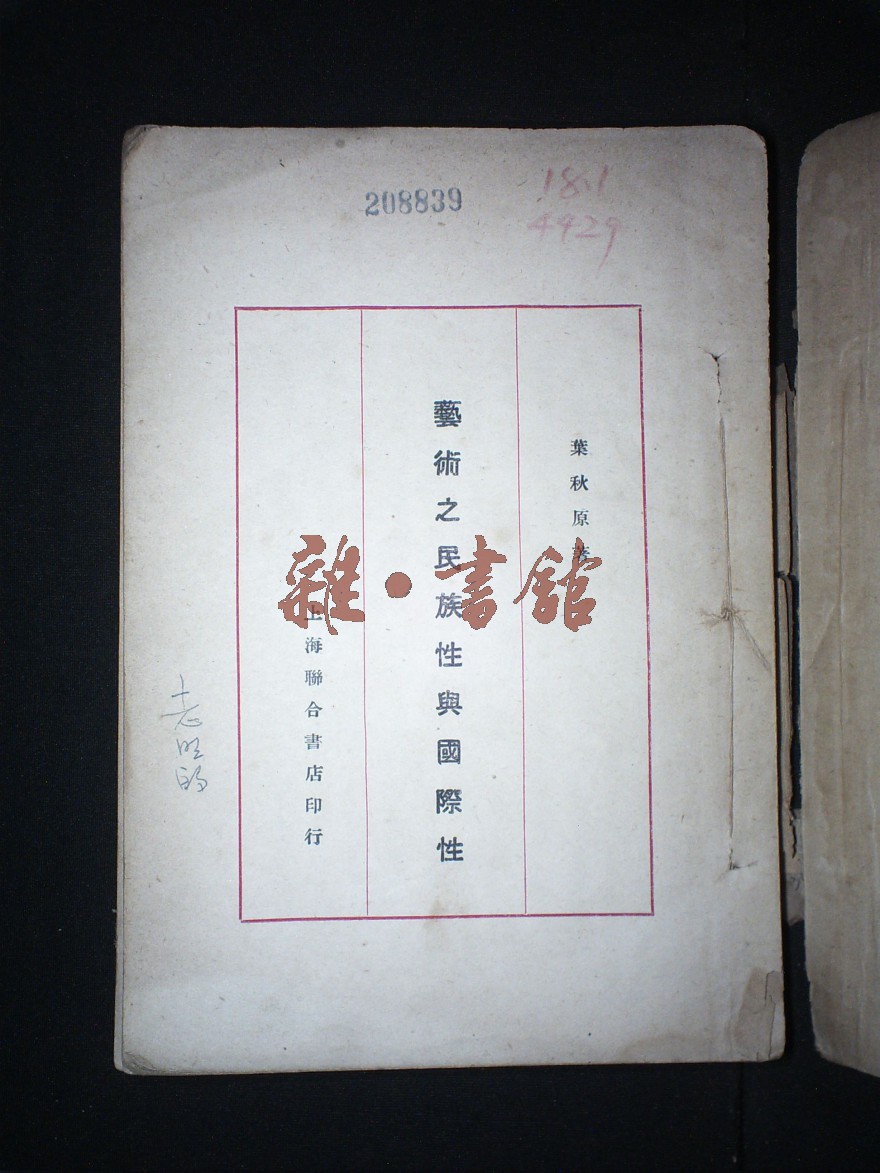 208839
18.1
4429
葉秋原著
藝術之民族性與國際性
上海聯合書店印行
雜·書館